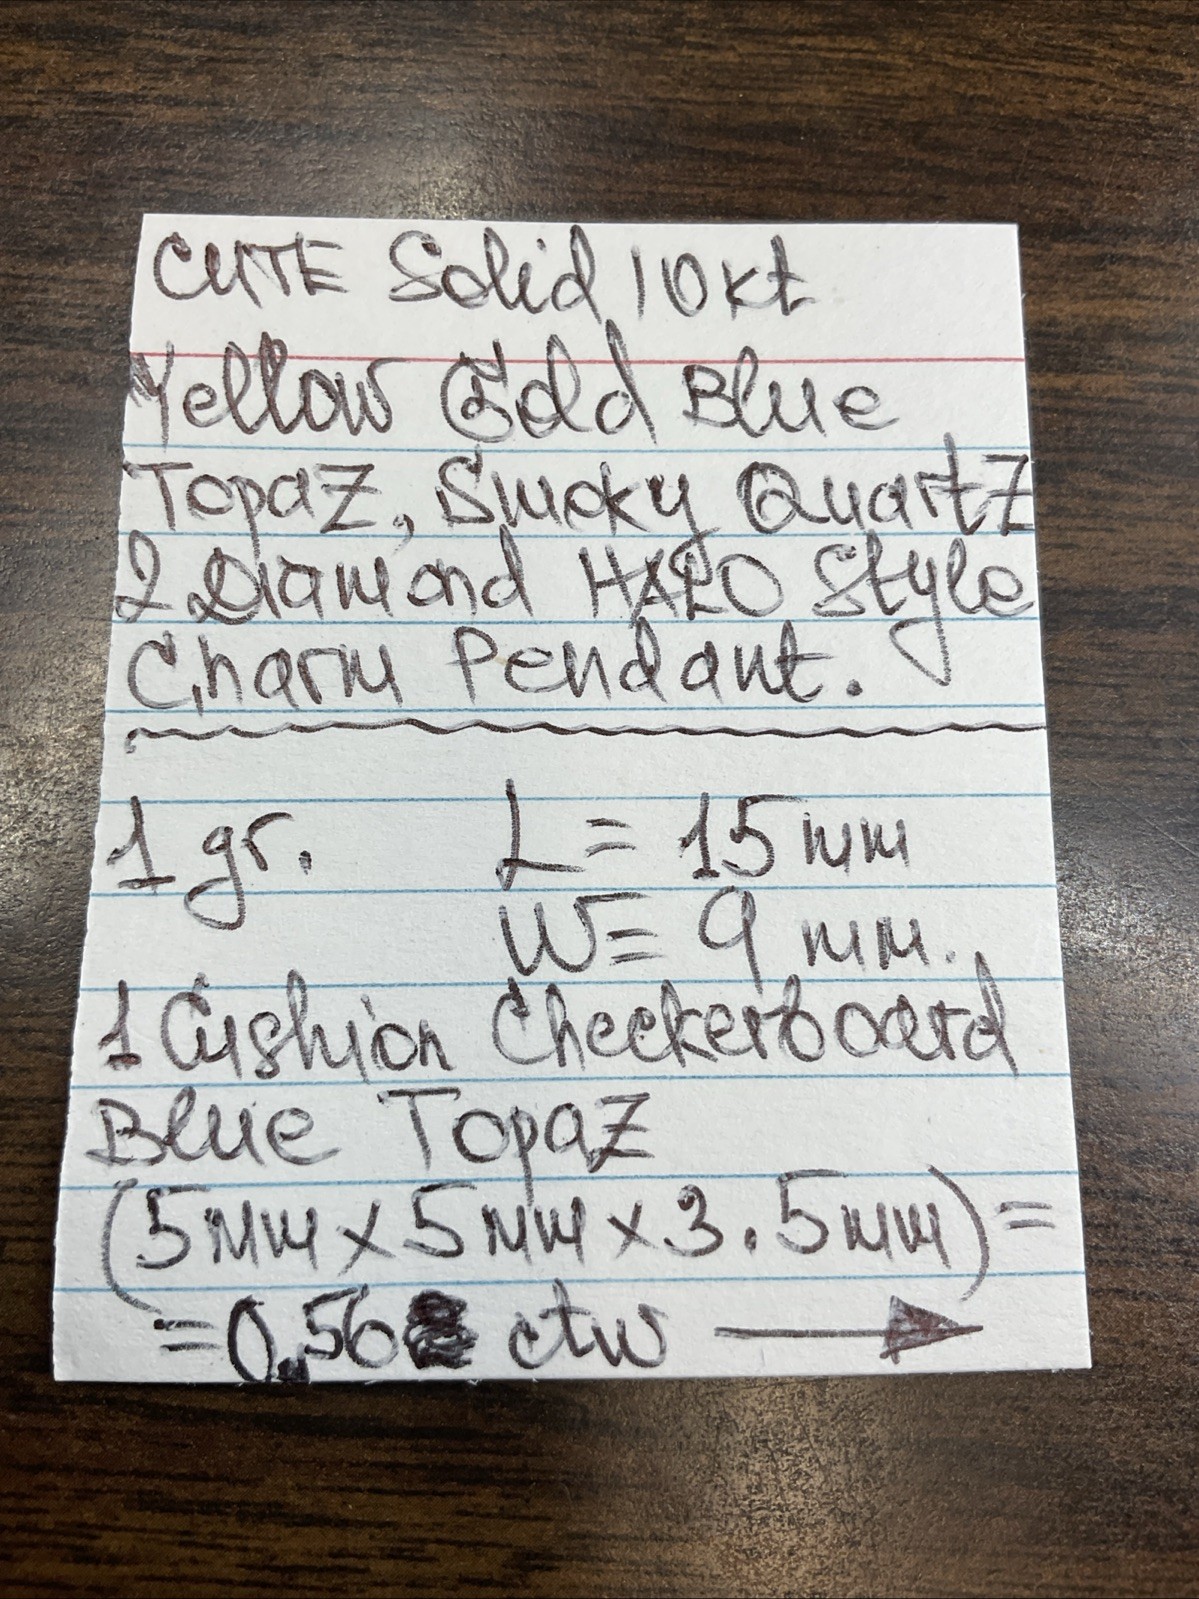 CUTE Solid 10kt
Yellow Gold Blue
Topaz, Smoky Quartz
2 Diamond HALO Style
Charm Pendant.
1 gr. L = 15 mm
W = 9 mm.
1 Cushion Checkerboard
Blue Topaz
(5mm x 5mm x 3.5mm) =
= 0.56 ctw →